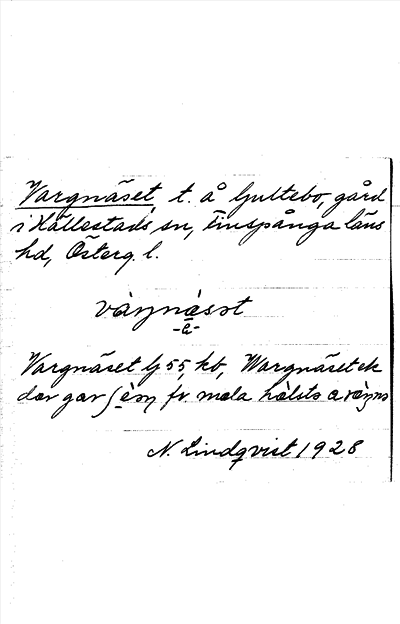 Vargnäset, t. å Ljultebo, gård
i Hällestads sn, Finspånga läns
hd, Österg. l.
vàŋnäsət
-ä-
Vargnäset Lj 55, kb, Wargnäset ek
där går fr. mela
N. Lindqvist 1928